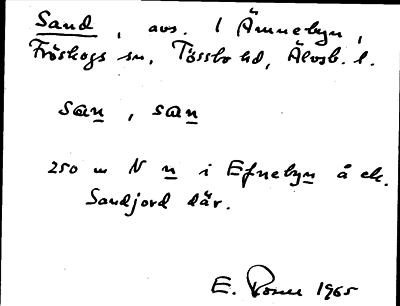 Sand, avs. i Ämnebyn,
Fröskogs sn, Tössbo hd, Älvsb. l.
san, san
250 m N n i Efnebyn å ek.
Sandjord där.
E. Rosen 1965